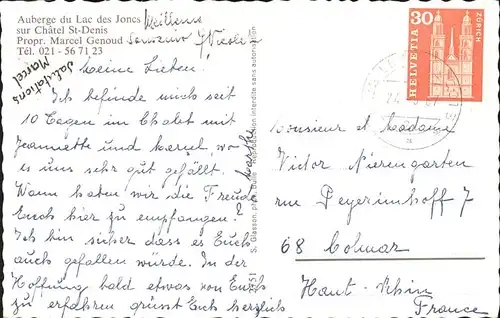 Auberge du Lac des Joncs
sur Châtel St-Denis
Propr. Marcel Genoud
Tél. 021 - 56 71 23
Meilleurs
Souvenir
Salutations
Marcel
Meine Lieben.
Ich befinde mich seit
10 Tagen im Chalet mit
Jeannette und Marcel, wo
es uns sehr gut gefällt.
Wann haben wir die Freude
Euch hier zu empfangen?
Ich bin sicher dass es Euch
auch gefallen würde. In der
Hoffnung bald etwas von Euch
zu erfahren grüsst Euch herzlich
Marthe
S. Glasson, phot., Bulle Reproduction interdite sans autorisation
30
HELVETIA
ZÜRICH
Monsieur et Madame
Victor Nierengarten
rue Peyerimhoff 7
68 Colmar
Haut-Rhin
France